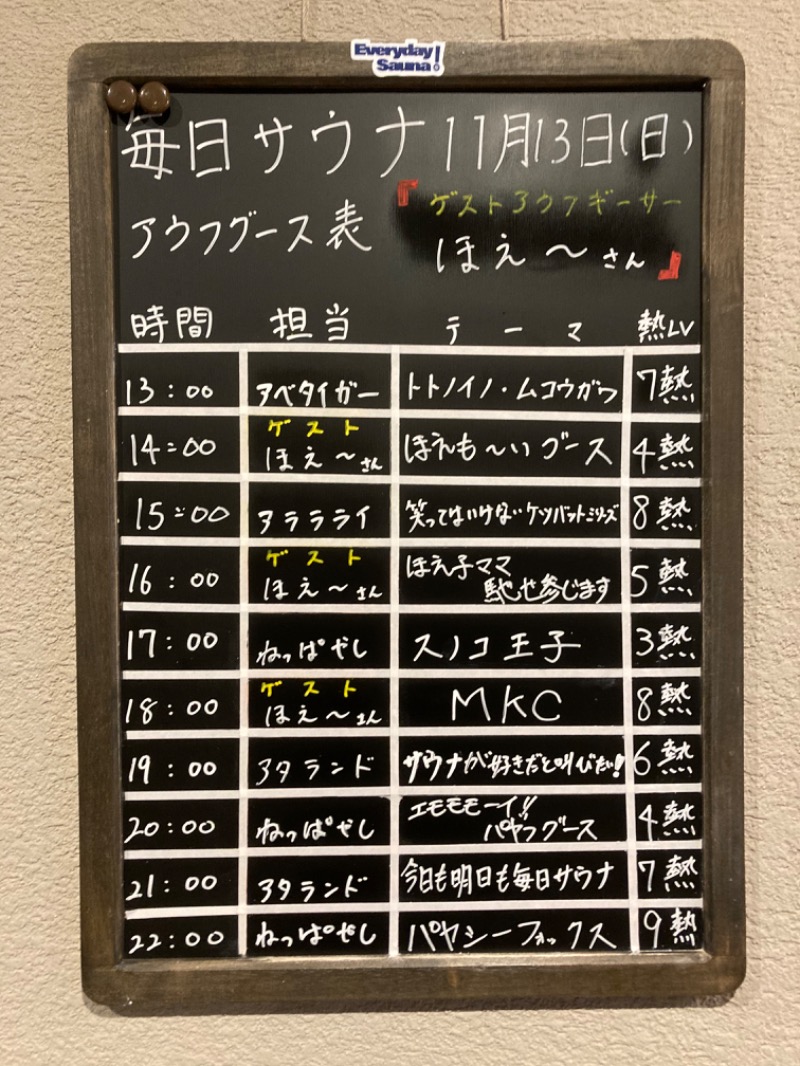 Everyday
Sauna!
毎日サウナ 11月13日(日)
アウフグース表
『ゲストアウフギーサー
ほえ～さん』
時間 担当 テーマ 熱LV
13:00 アベタイガー トトノイノ・ムコウガワ 7熱
ゲスト
14:00 ほえ～さん ほえも～いグース 4熱
15:00 アララライ 笑ってはいけないケツバットシリーズ 8熱
ゲスト ほえ子ママ
16:00 ほえ～さん 馳せ参じます 5熱
17:00 ねっぱやし スノコ王子 3熱
ゲスト
18:00 ほえ～さん MKC 8熱
19:00 アタランド サウナが好きだと叫びたい! 6熱
エモモモーイ!!
20:00 ねっぱやし パヤングース 4熱
21:00 アタランド 今日も明日も毎日サウナ 7熱
22:00 ねっぱやし パヤシーフォックス 9熱